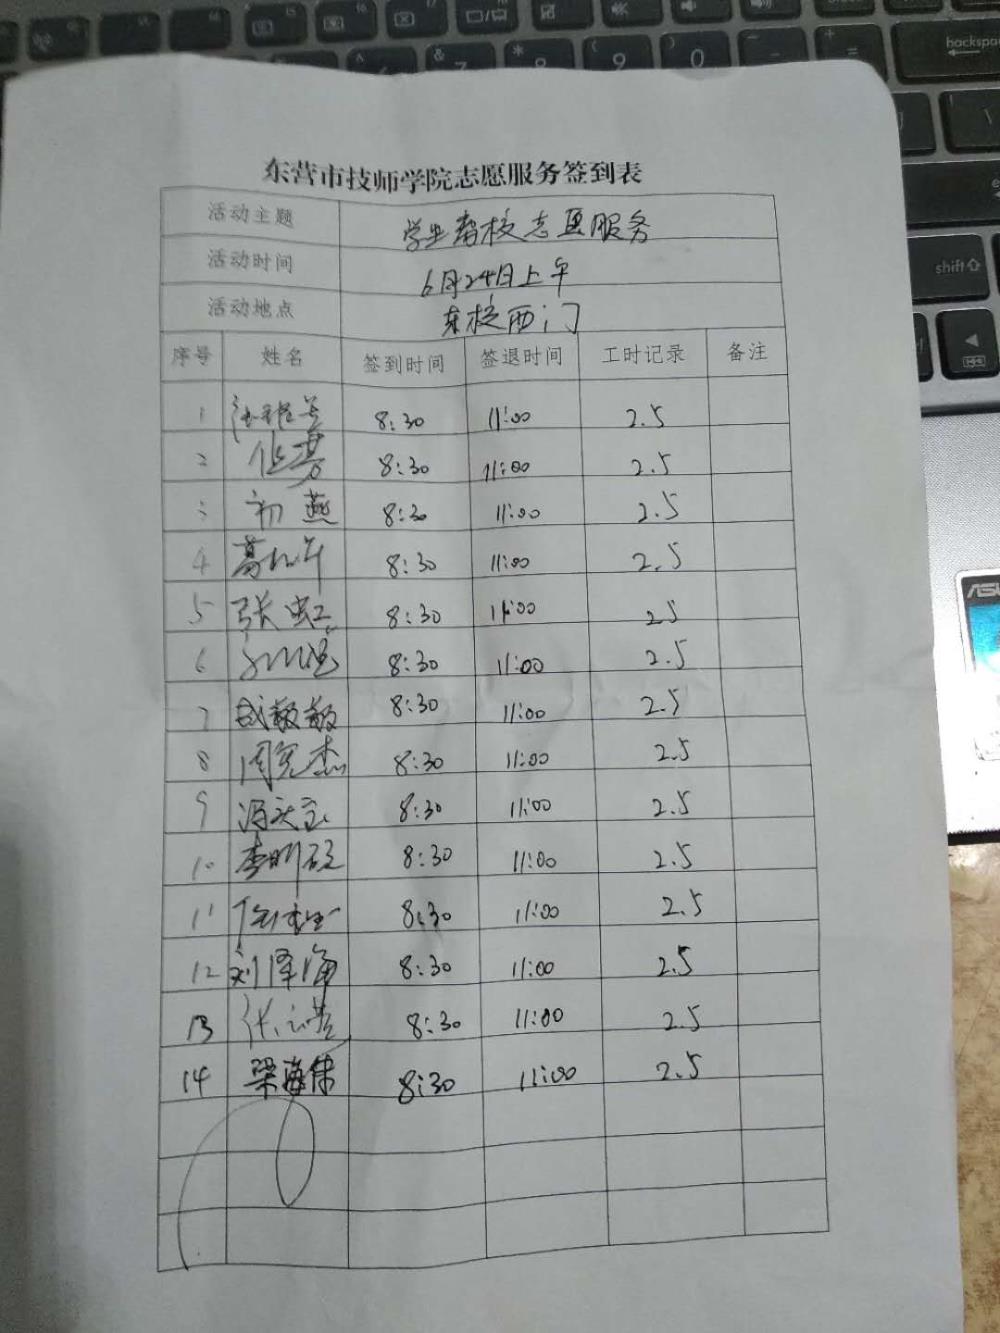 东营市技师学院志愿服务签到表
活动主题 学生离校志愿服务
活动时间 6月24日上午
活动地点 东校西门
序号 姓名 签到时间 签退时间 工时记录 备注
1 8:30 11:00 2.5
2 8:30 11:00 2.5
3 初燕 8:30 11:00 2.5
4 8:30 11:00 2.5
5 张虹 8:30 11:00 2.5
6 8:30 11:00 2.5
7 成敏敏 8:30 11:00 2.5
8 周宪杰 8:30 11:00 2.5
9 8:30 11:00 2.5
10 李明 8:30 11:00 2.5
11 8:30 11:00 2.5
12 刘泽海 8:30 11:00 2.5
13 8:30 11:00 2.5
14 梁海伟 8:30 11:00 2.5
backspace
shift
ASU